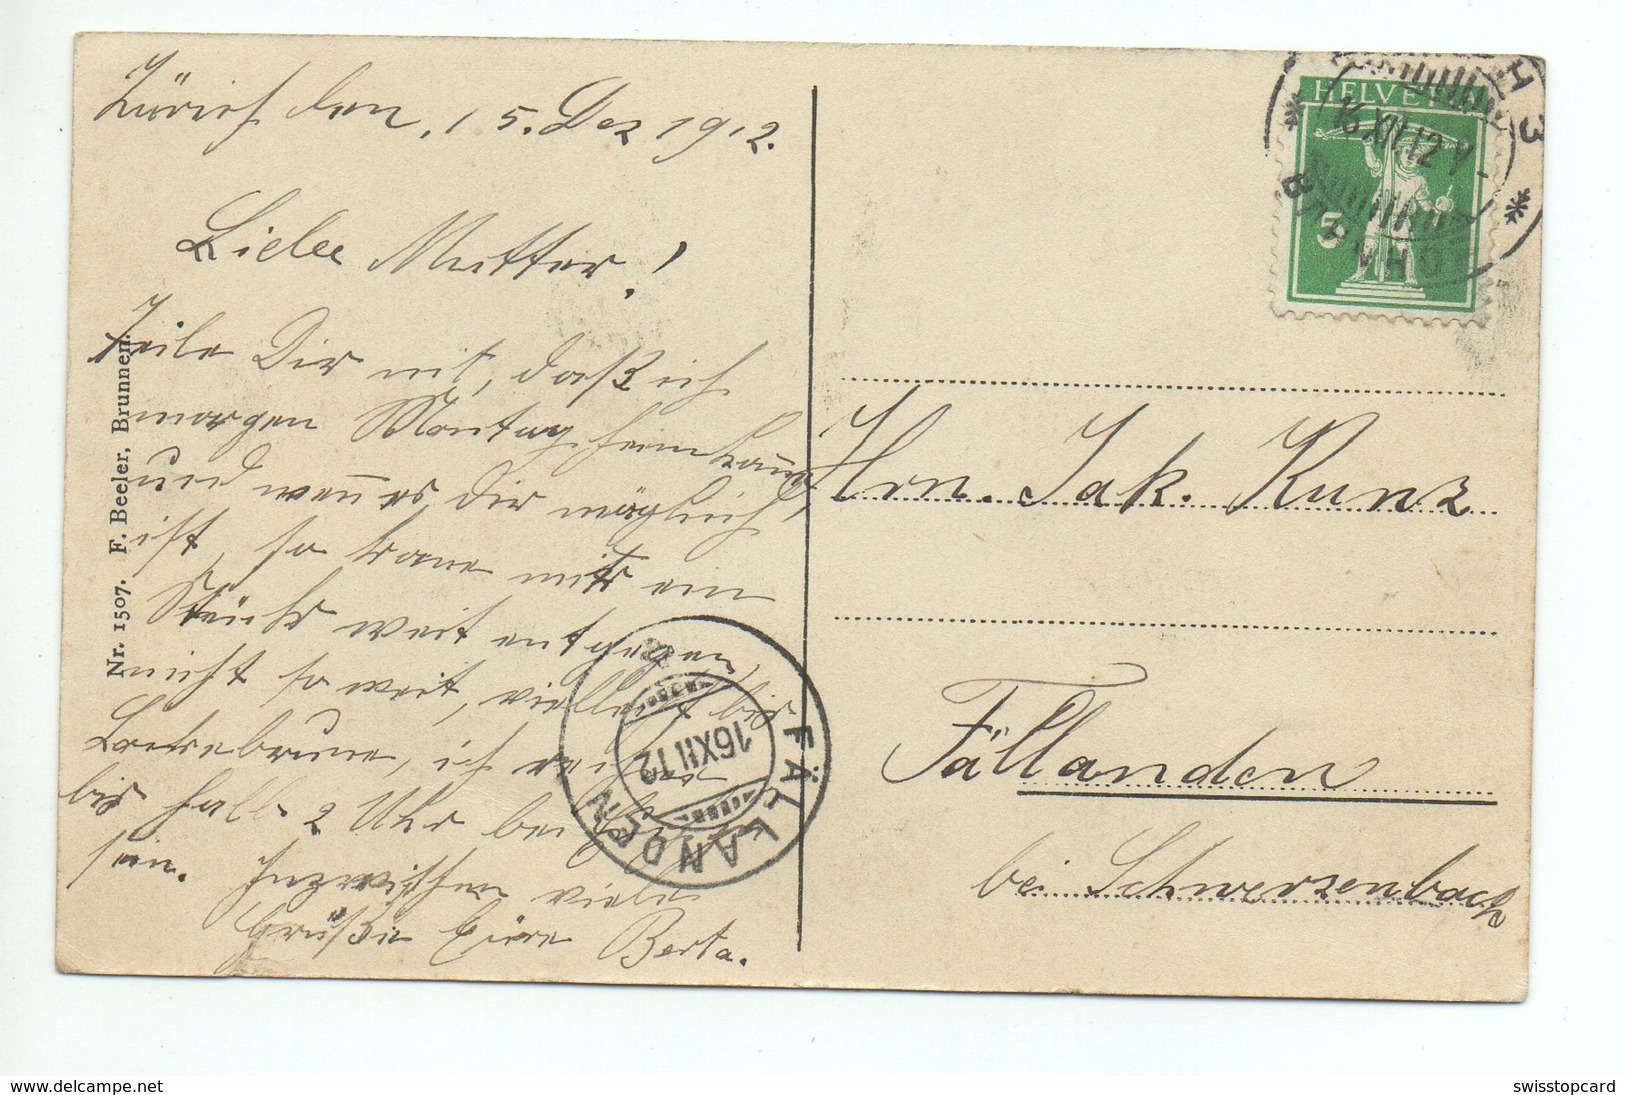 Zürich den, 15. Dez 1912.
Liebe Mutter!
Teile Dir mit, daß ich
morgen Montag heimkomme
und wenn es dir möglich
ist, so komme mir ein
Stück weit entgegen,
nicht so weit, vielleicht bis
ich
bis halb 2 Uhr bei
sein. Inzwischen viele
Grüße Eure Berta.
Nr. 1507. F. Beeler, Brunnen.
HELVETIA
5
16 XII 12 9-
FÄLLANDEN
16 XII 12
Hrn. Jak. Kunz
Fällanden
bei Schwerzenbach
www.delcampe.net
swisstopcard